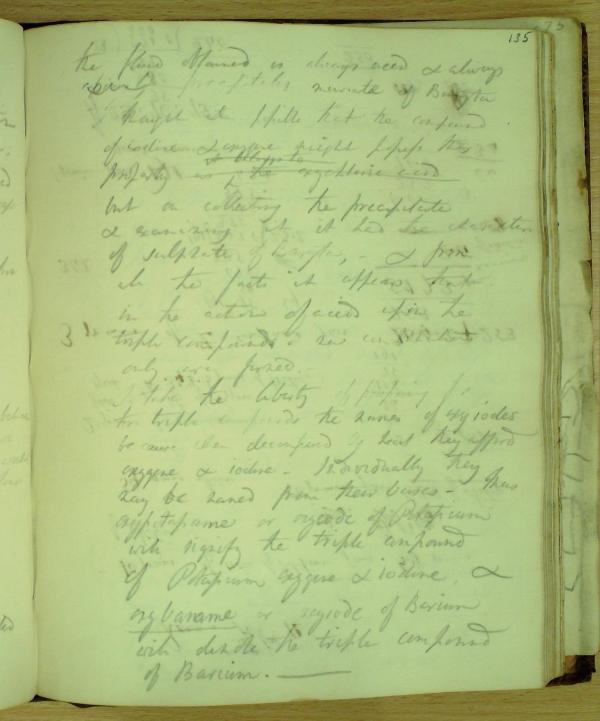 135
the fluid obtained is always acid & always
precipitates muriate of Baryta
I thought it possible that the compound
of iodine & oxygene might possess this
property as the oxyiodine acid
but on collecting the precipitate
& examining it it had the characters
of sulphate of Baryta, - & from
all the facts it appears that
in the action of acids upon the
31
triple compounds
only are formed.
I take the liberty of proposing for
the triple compounds the names of oxyiodes
because when decomposed by heat they afford
oxygene & iodine - Individually they
may be named from their bases - Thus
or oxyiode of Potassium
will signify the triple compound
of Potassium oxygene & iodine, &
or oxyiode of Barium
will denote the triple compound
of Barium.